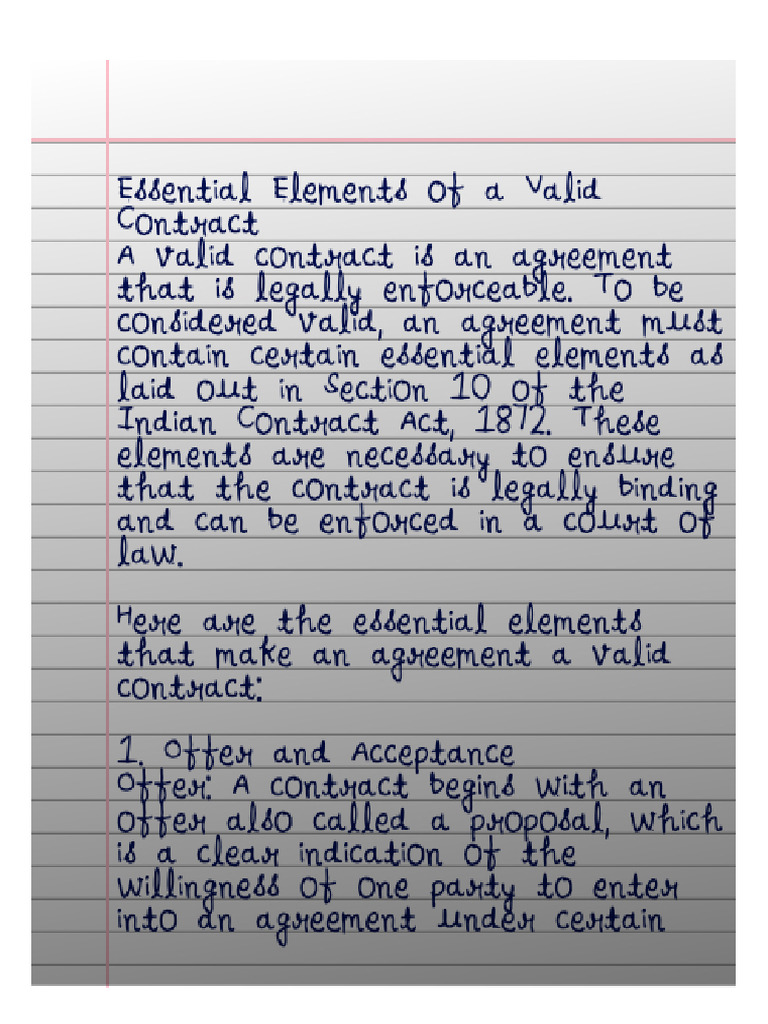 Essential Elements of a Valid
Contract
A valid contract is an agreement
that is legally enforceable. To be
considered valid, an agreement must
contain certain essential elements as
laid out in Section 10 of the
Indian Contract Act, 1872. These
elements are necessary to ensure
that the contract is legally binding
and can be enforced in a court of
law.

Here are the essential elements
that make an agreement a valid
contract:

1. Offer and Acceptance
Offer: A contract begins with an
offer also called a proposal, which
is a clear indication of the
willingness of one party to enter
into an agreement under certain